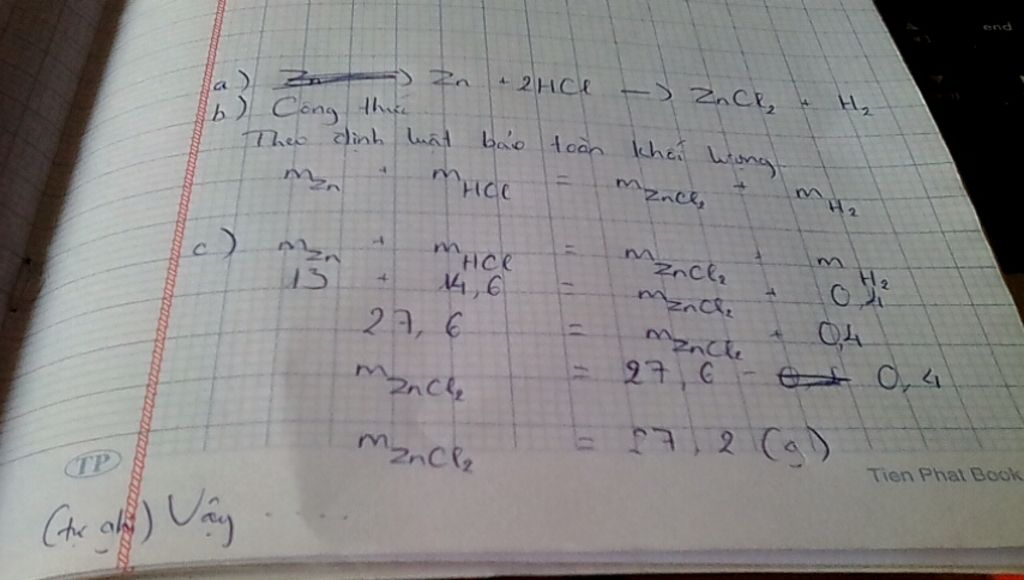 end
a) Zn + 2HCl → ZnCl₂ + H₂
b) Công thức
Theo định luật bảo toàn khối lượng.
m_Zn + m_HCl = m_ZnCl₂ + m_H₂
c) m_Zn + m_HCl = m_ZnCl₂ + m_H₂
13 + 14,6 = m_ZnCl₂ + 0,4
27,6 = m_ZnCl₂ + 0,4
m_ZnCl₂ = 27,6 - 0,4
m_ZnCl₂ = 27,2 (g)
TP
Tien Phat Book
(tự ghi) Vậy .....